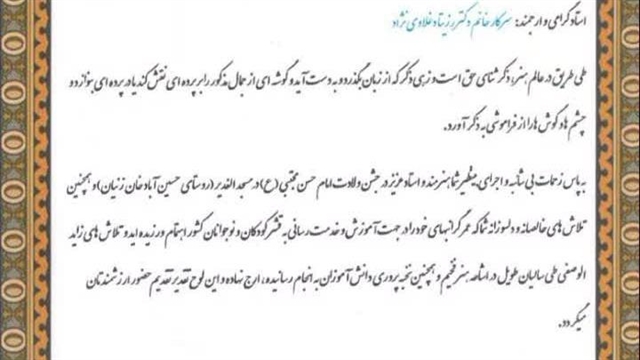 استاد گرامی و ارجمند: سرکار خانم دکتر رزیتا دغلاوی نژاد
طی طریق در عالم هنر، ذکر ثنای حق است و زهی ذکر که از زبان بگذرد و به دست آید و گوشه ای از جمال مذکور را بر پرده ای نقش کند یا در پرده ای بنوازد و
چشم ها و گوش ها را از فراموشی به ذکر آورد.
به پاس زحمات بی شائبه و اجرای بینظیر شما هنرمند و استاد عزیز در جشن ولادت امام حسن مجتبی (ع) در مسجد الغدیر (روستای حسین آباد خان زنیان) و همچنین
تلاش های خالصانه و دلسوزانه شما که عمر گرانبهای خود را در جهت آموزش و خدمت رسانی به قشر کودکان و نوجوانان کشور اهتمام ورزیده اید و تلاش های زاید
الوصفی طی سالیان طویل در اشاعه هنر فخیم و همچنین نخبه پروری دانش آموزان به انجام رسانیده، ارج نهاده و این لوح تقدیر تقدیم حضور ارزشمندتان
میگردد.